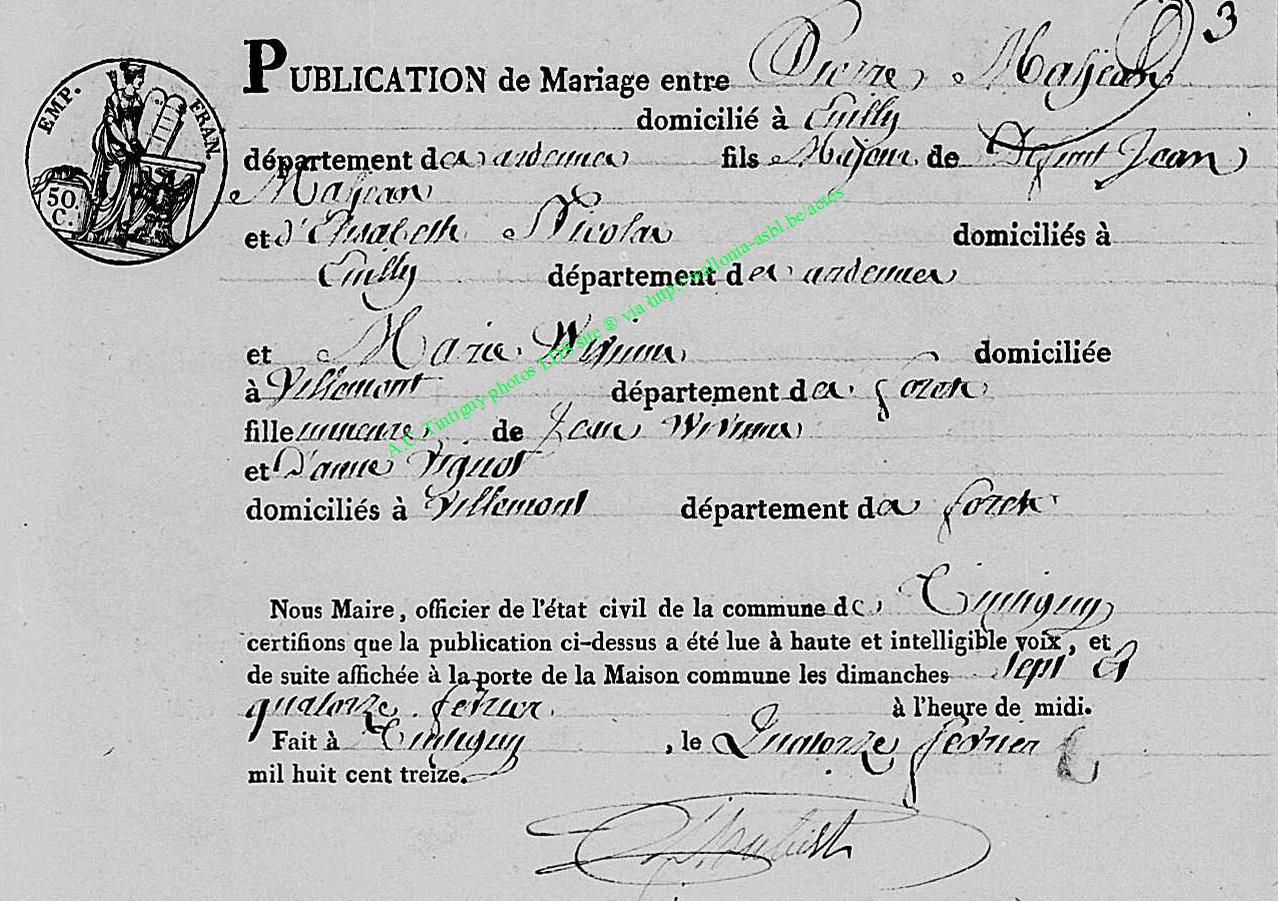 3
EMP. FRAN.
50. C.
PUBLICATION de Mariage entre Pierre Majean
domicilié à Euilly
département des ardennes fils Majeur de Defunt Jean
Majean
et d'Elisabeth Nicolas domiciliés à
Euilly département des ardennes
et Marie domiciliée
à Villemont département des forets
fille mineure de Jean
et D'anne Pignot
domiciliés à Villemont département des forets
Nous Maire, officier de l'état civil de la commune de Tintigny
certifions que la publication ci-dessus a été lue à haute et intelligible voix, et
de suite affichée à la porte de la Maison commune les dimanches sept et
quatorze fevrier à l'heure de midi.
Fait à Tintigny, le Quatorze fevrier
mil huit cent treize.
A.C. Tintigny photos LDS site ® via http://wallonia-asbl.be/actes